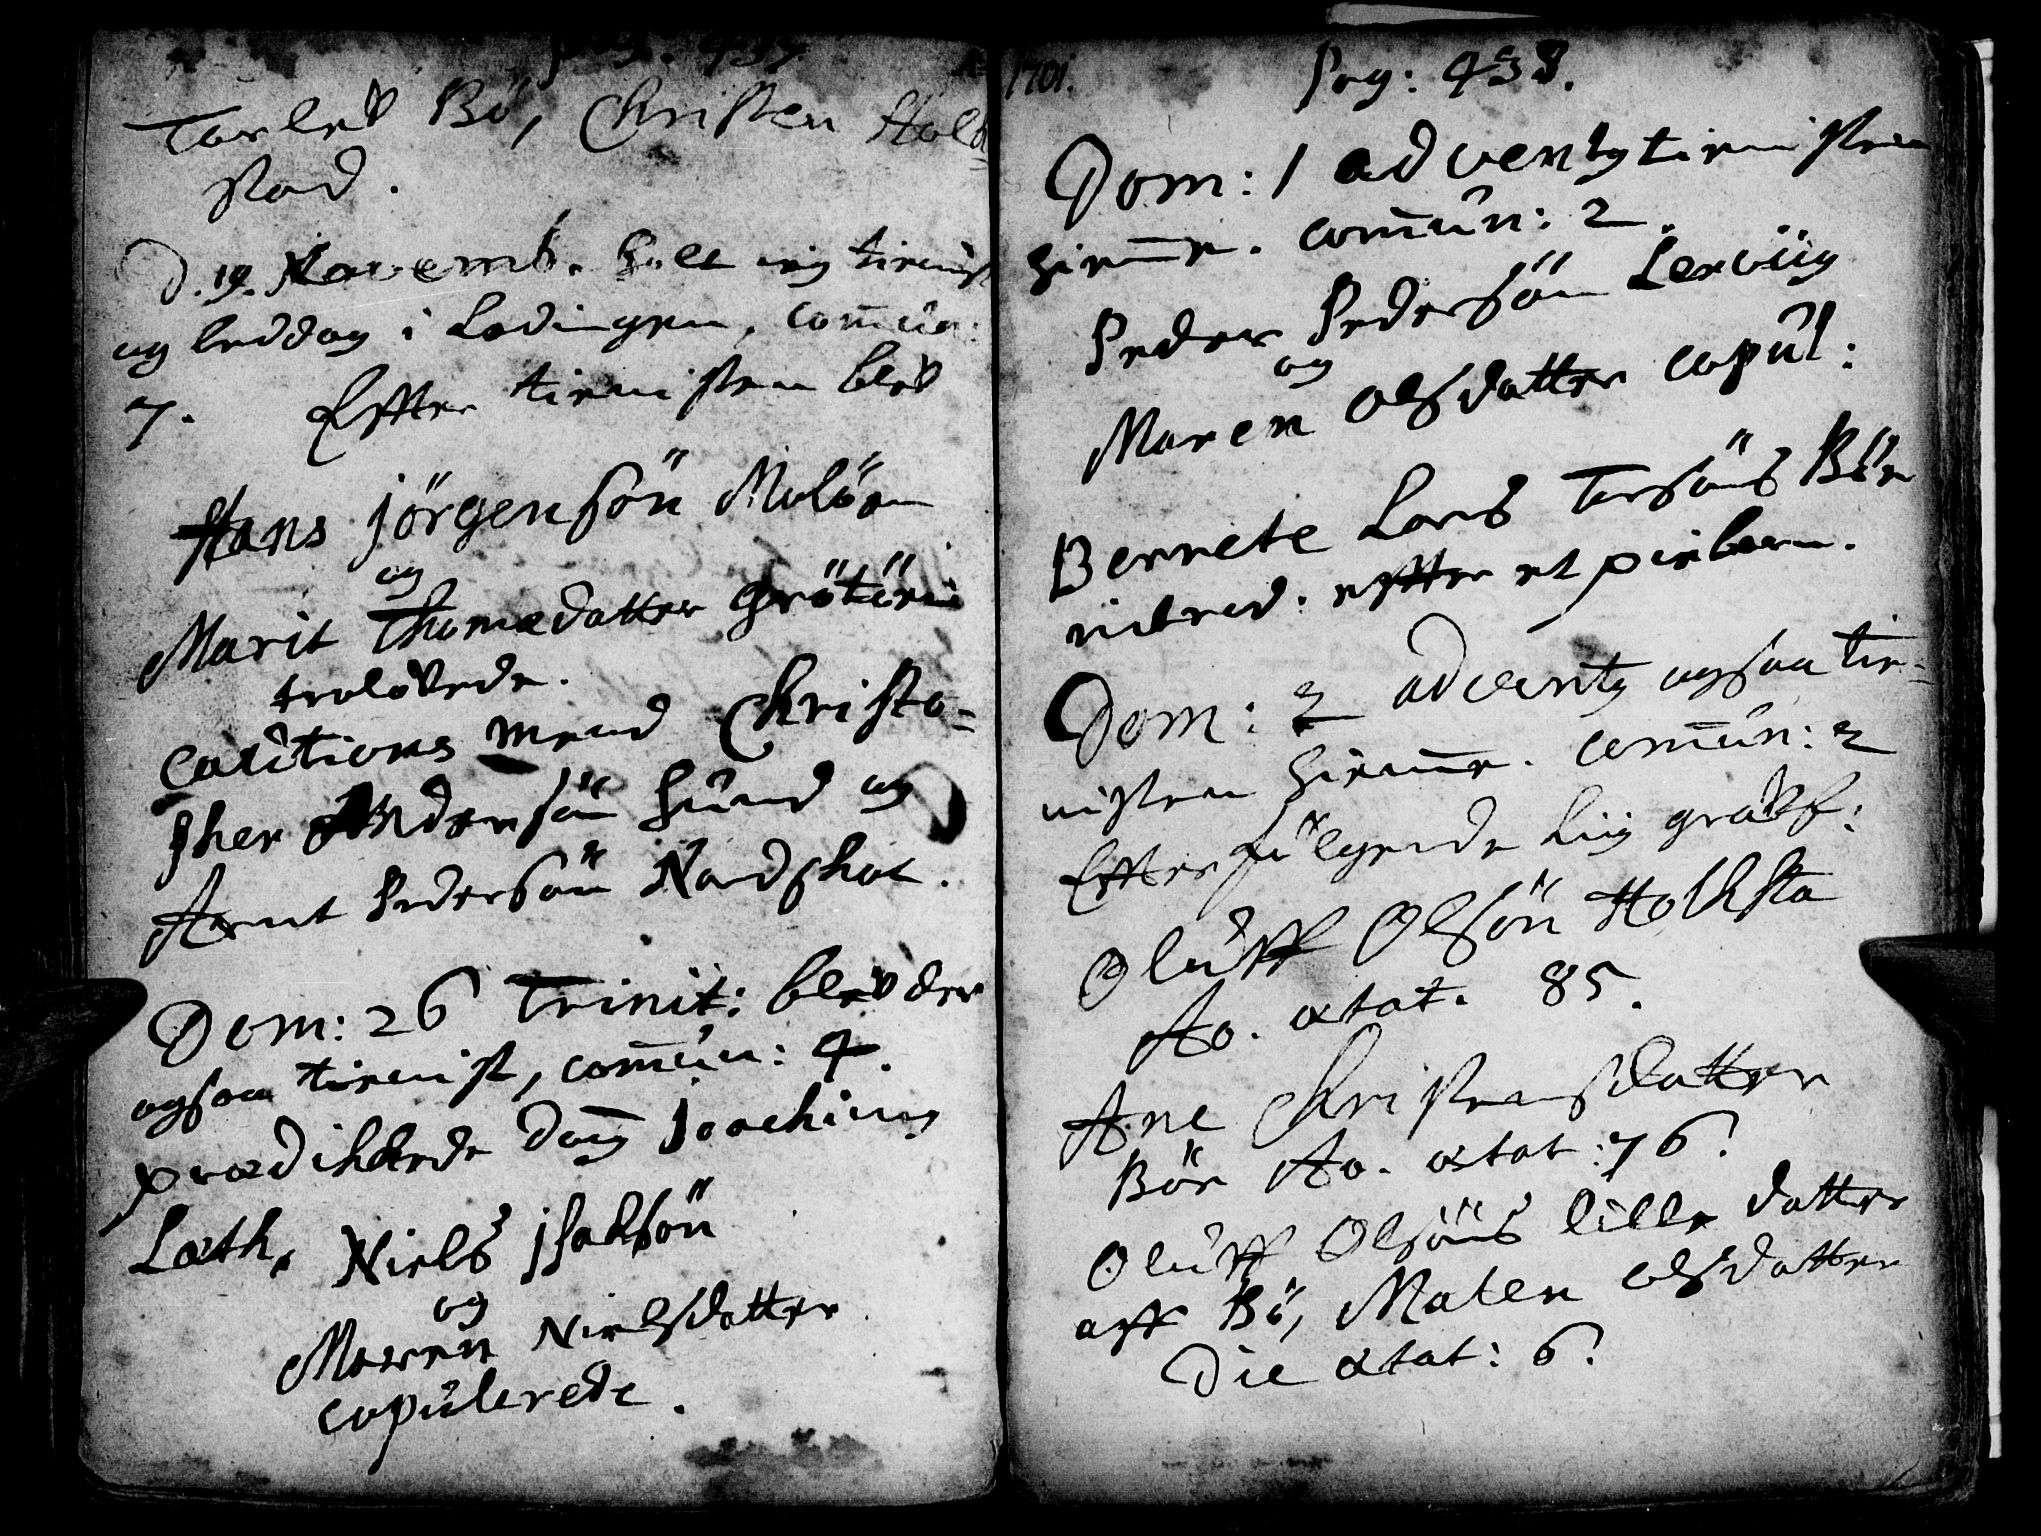 Pag: 437.
Torlef Bö, Christen Hold
stad.
D. 19. Novemb. holt ieg tienist
og leddag i Lodingen, com̄un:
7. Effter tienisten blef
Hans Jörgensön Molöen
og
Marit Thomædatter Grötöen
trolofvede.
Cautions mend Christo-
pher Andersön Hund og
Arnt Pedersön Nordshot.
Dom: 26 Trinit: blef der
ogsaa tienist, com̄un: 4.
prædikede da
Lath. Niels Isachsön
og
Maren Nielsdatter
copulerede.
Ao 1701. Pag: 438.
Dom: 1 advents tienisten
hiem̄e. com̄un: 2.
Peder Pedersön Lerviig
og
Maren Olsdatter copul:
Berrete Lars Torsöns Böe
intred. effter et pigebarn.
Dom: 2 advents ogsaa tie-
nisten hiem̄e. com̄un: 2
Effterfölgende Liig grafv:
Oluff Olsön Holksta
Ao. ætat. 85.
Ane Christensdatter
Böe Ao. ætat: 76.
Oluff Olsöns lille datter
aff Bö, Malen olsdatter
Die ætat: 6.